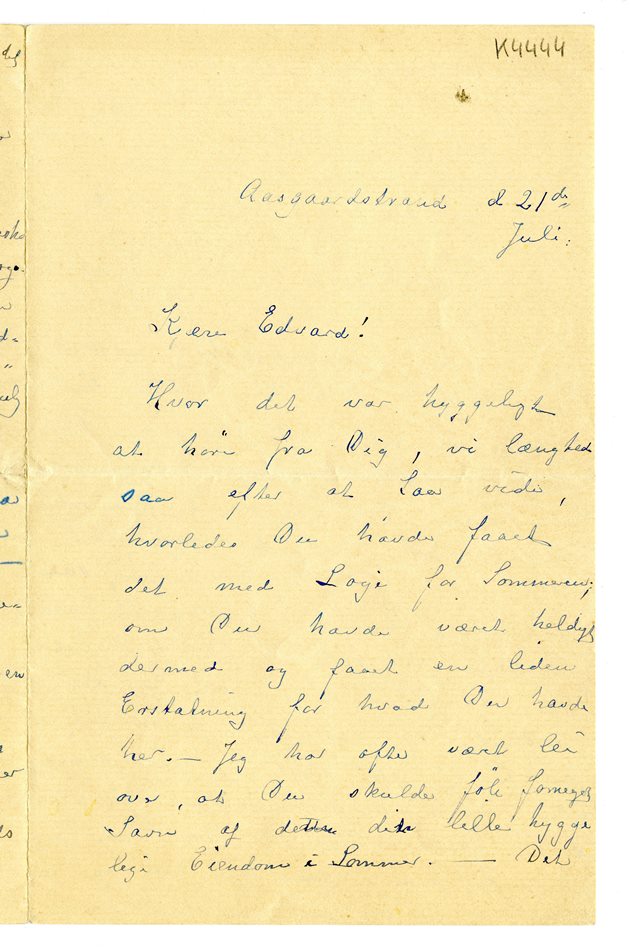 K4444
Aasgaardstrand d 21de
Juli.
Kjære Edvard!
Hvor det var hyggeligt
at høre fra Dig, vi længted
saa efter at faa vide,
hvorledes Du havde faaet
det med Logi for Sommeren;
om Du havde været heldig
dermed og faaet en liden
Erstatning for hvad Du havde
her. — Jeg har ofte været lei
over, at Du skulde føle formeget
Savn af din lille hygge
lige Eiendom i Sommer. — Det